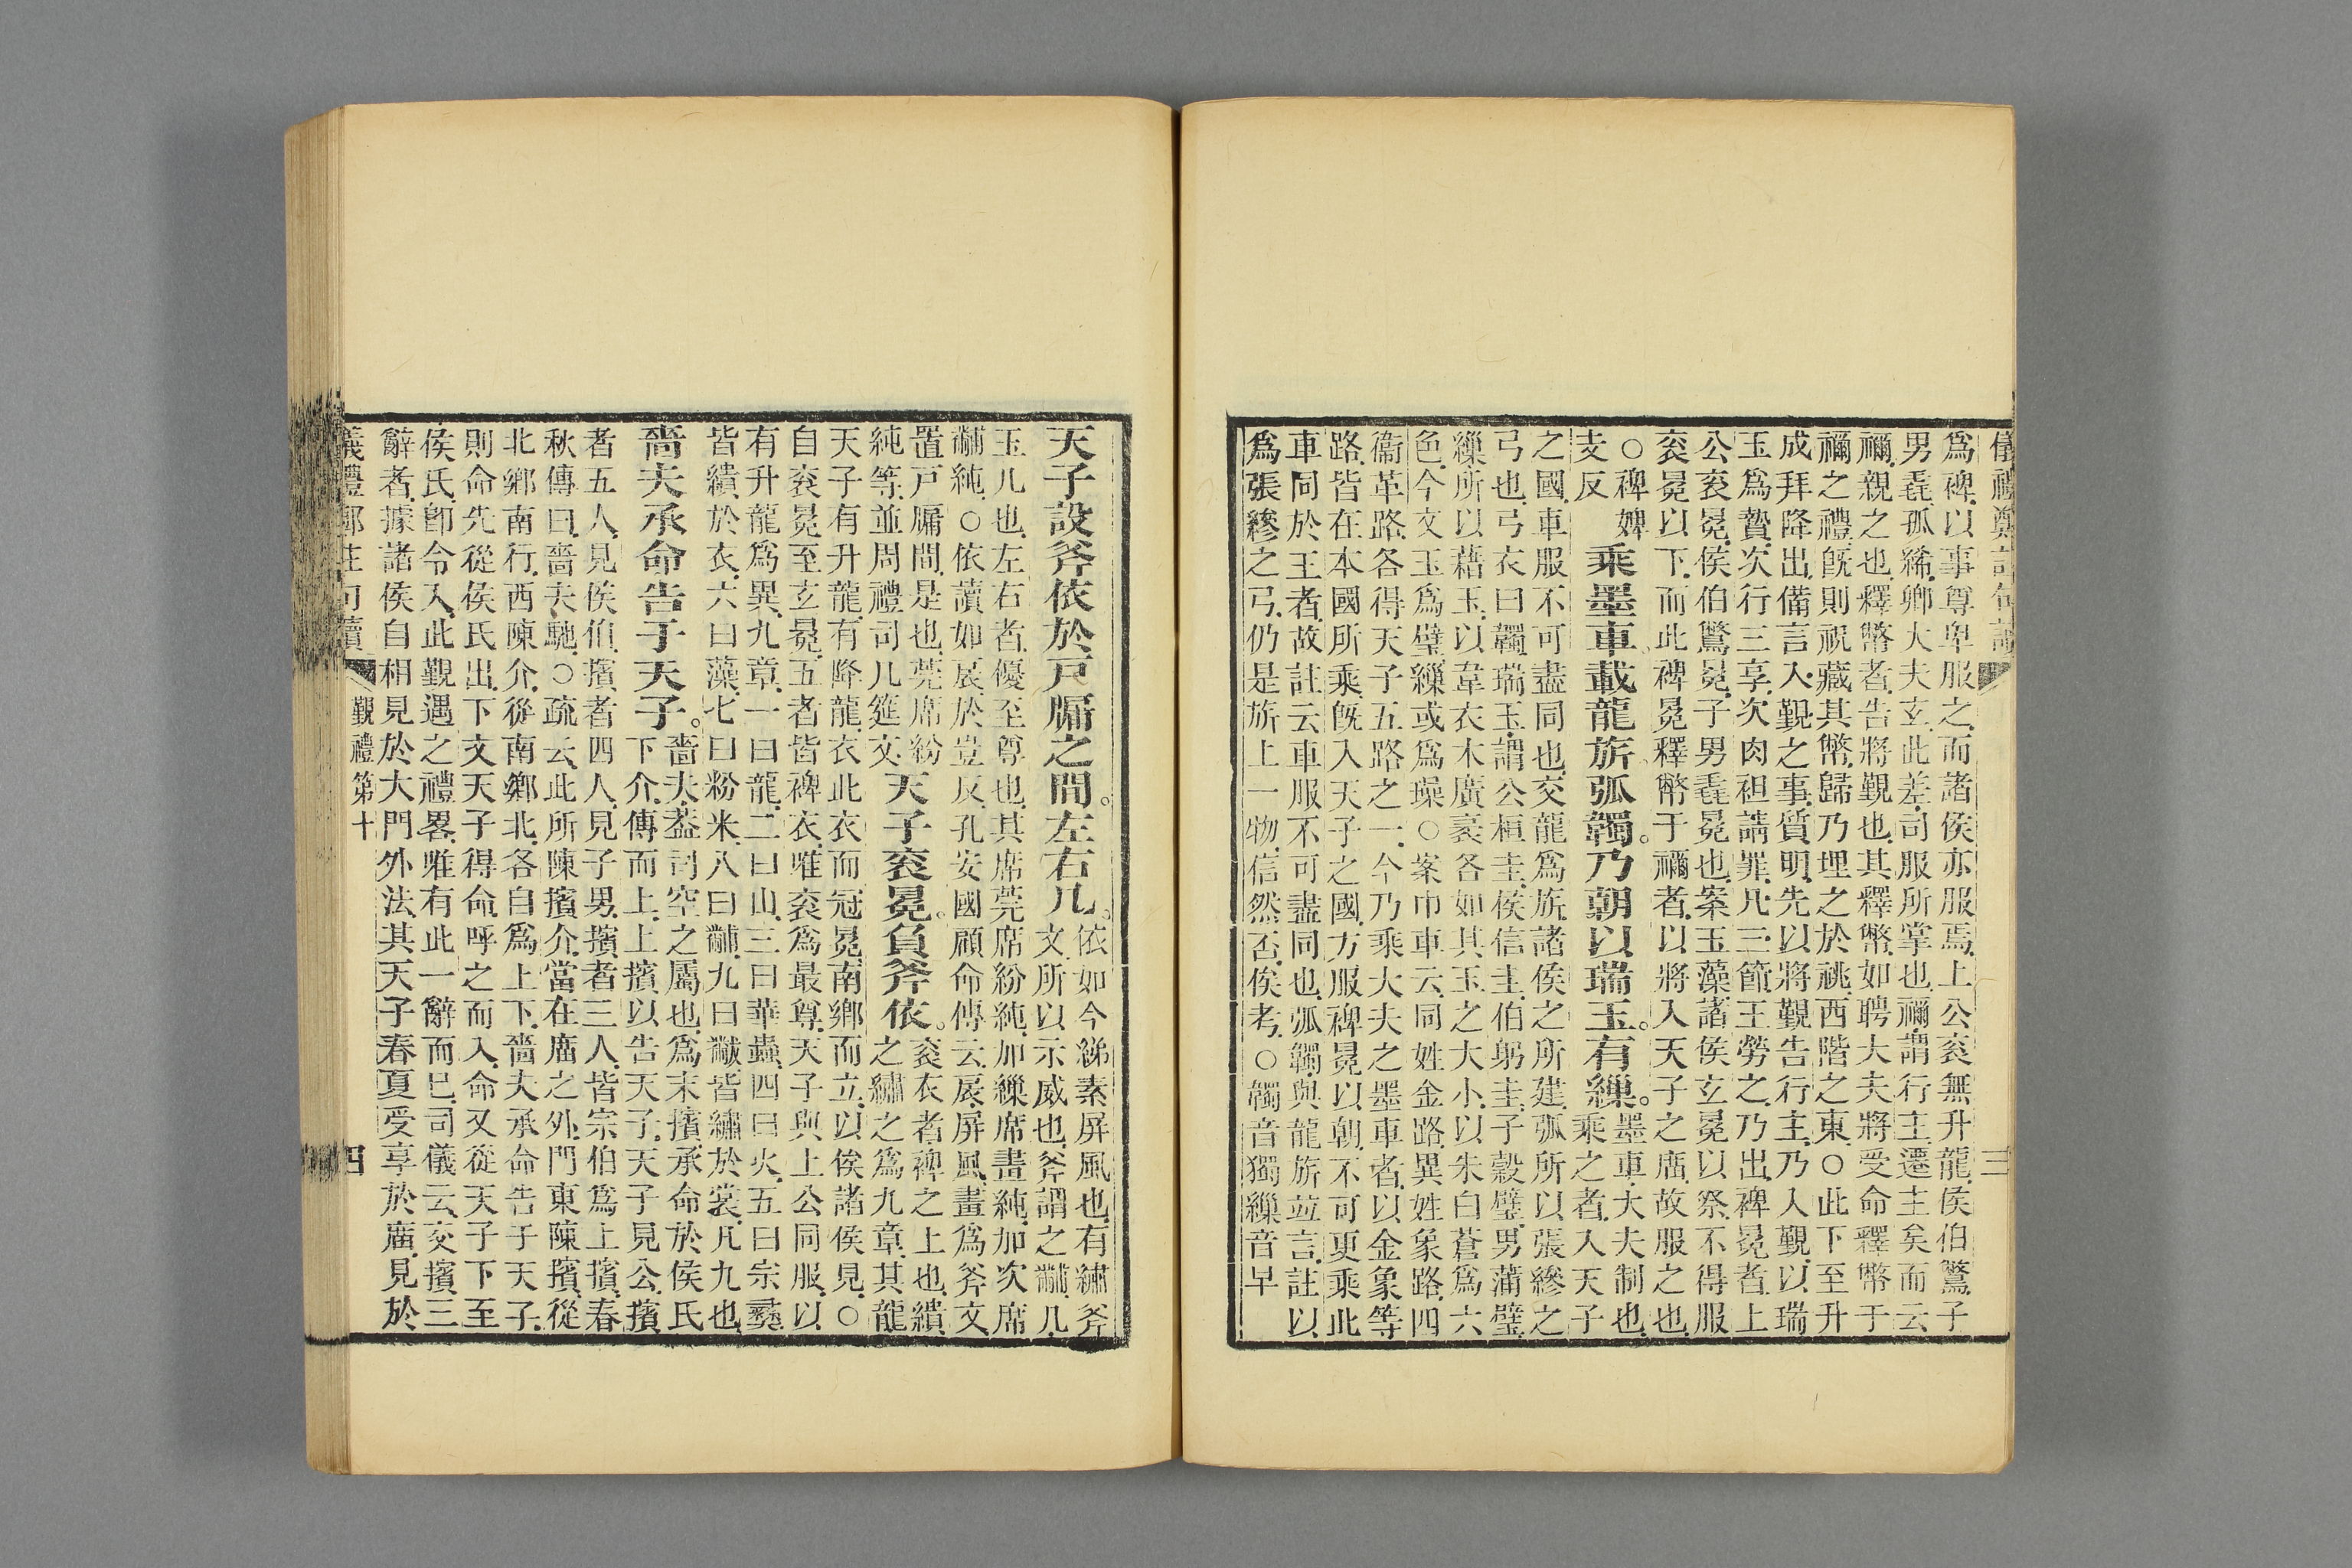 爲裨以事尊卑服之而諸侯亦服焉上公衮無升龍侯伯鷩子
男毳孤絺卿大夫玄此差司服所掌也禰謂行主遷主矣而云
禰親之也釋幣者告將覲也其釋幣如聘大夫將受命釋幣于
禰之禮旣則祝藏其幣歸乃埋之於祧西階之東○此下至升
成拜降出備言入覲之事質明先以將覲告行主乃入覲以瑞
玉爲贄次行三享次肉袒請罪凡三節王勞之乃出裨冕者上
公衮冕侯伯鷩冕子男毳冕也案玉藻諸侯玄冕以祭不得服
衮冕以下而此裨冕釋幣于禰者以將入天子之廟故服之也
○裨婢
支反
乘墨車載龍旂弧韣。乃朝以瑞玉。有繅。
墨車大夫制也
乘之者入天子
之國車服不可盡同也交龍爲旂諸侯之所建弧所以張縿之
弓也弓衣曰韣瑞玉謂公桓圭侯信圭伯躬圭子穀璧男蒲璧
繅所以藉玉以韋衣木廣袤各如其玉之大小以朱白蒼爲六
色今文玉爲璧繅或爲璪○案巾車云同姓金路異姓象路四
衞革路各得天子五路之一今乃乘大夫之墨車者以金象等
路皆在本國所乘旣入天子之國方服裨冕以朝不可更乘此
車同於王者故註云車服不可盡同也弧韣與龍旂竝言註以
爲張縿之弓仍是旂上一物信然否俟考○韣音獨繅音早
天子設斧依於戶牖之間。左右几。
依如今綈素屏風也有繡斧
文所以示威也斧謂之黼几
玉几也左右者優至尊也其席莞席紛純加繅席畫純加次席
黼純○依讀如扆於豈反孔安國顧命傳云扆屏風畫爲斧文
置戶牖間是也莞席紛
純等並周禮司几筵文
天子衮冕。負斧依。
衮衣者裨之上也繢
之繡之爲九章其龍
天子有升龍有降龍衣此衣而冠冕南鄉而立以俟諸侯見○
自衮冕至玄冕五者皆裨衣唯衮爲最尊天子與上公同服以
有升龍爲異九章一曰龍二曰山三曰華蟲四曰火五曰宗彝
皆繢於衣六曰藻七曰粉米八曰黼九曰黻皆繡於裳凡九也
嗇夫承命告于天子。
嗇夫葢司空之屬也爲末擯承命於侯氏
下介傳而上上擯以告天子天子見公擯
者五人見侯伯擯者四人見子男擯者三人皆宗伯爲上擯春
秋傳曰嗇夫馳○疏云此所陳擯介當在廟之外門東陳擯從
北鄉南行西陳介從南鄉北各自爲上下嗇夫承命告于天子
則命先從侯氏出下文天子得命呼之而入命又從天子下至
侯氏卽令入此覲遇之禮畧唯有此一辭而已司儀云交擯三
辭者據諸侯自相見於大門外法其天子春夏受享於廟見於
覲禮第十
四
三